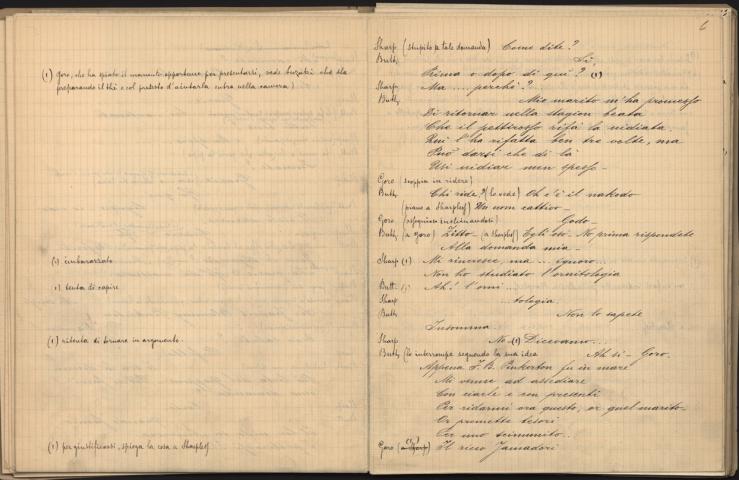 (1) Goro, che ha spiato il momento opportuno per presentarsi, vede Suzuki che sta
preparando il thè e col pretesto d'aiutarla entra nella camera)
(1) imbarazzato
(1) tenta di capire
(1) ritenta di tornare in argomento.
(1) per giustificarsi, spiega la cosa a Sharpless
6
Sharp (stupito p. tale domanda) Come dite?
Butt. Sì,
Prima o dopo di qui? (1)
Sharp. Ma .... perchè?
Butt. Mio marito m'ha promesso
Di ritornar nella stagion beata
Che il pettirosso rifà la nidiata.
Qui l'ha rifatta ben tre volte, ma
Può darsi che di là
Usi nidiar men spesso -
Goro (scoppia in ridere)
Butt. Chi ride? (lo vede) Oh c'è il nakodo
(piano a Sharpless) Un uom cattivo -
Goro (ossequioso inchinandosi) Godo -
Butt. (a Goro) Zitto - (a Sharpless) Egli osò - No prima rispondete
Alla domanda mia -
Sharp (1) Mi rincresce, ma ... ignoro...
Non ho studiato l'ornitologia
Butt. (1) Ah! l'orni...
Sharp ...tologia.
Butt. Non lo sapete
Insomma
Sharp No - (1) Dicevamo...
Butt. (lo interrompe seguendo la sua idea Ah sì - Goro,
Appena F. B. Pinkerton fu in mare
Mi venne ad assediare
Con ciarle e con presenti
Per ridarmi ora questo, or quel marito -
Or promette tesori
Per uno scimunito..
Goro (a Sharp) (1) Il ricco Jamadori